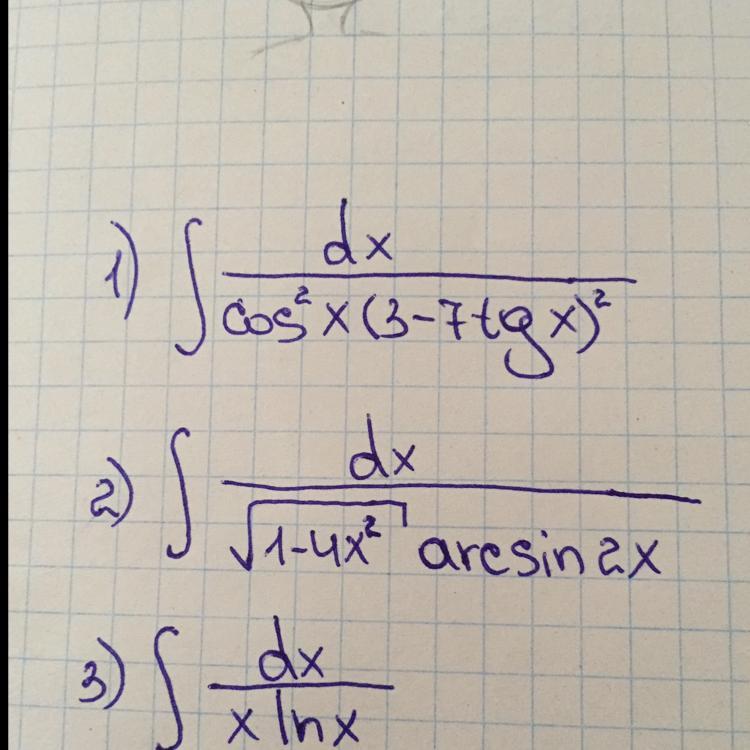 1) ∫ dx / cos² x (3-7tg x)²
2) ∫ dx / √1-4x² arcsin 2x
3) ∫ dx / x ln x